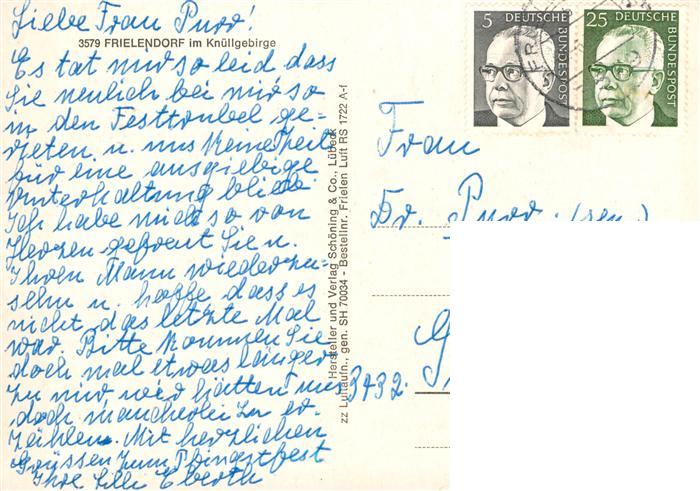 Liebe Frau Purr!
3579 FRIELENDORF im Knüllgebirge
Es tat mir so leid dass
Sie neulich bei mir so
in den Festtrubel ge=
rieten u. uns keine Zeit
für eine ausgiebige
Unterhaltung blieb.
Ich habe mich so von
Herzen gefreut Sie u.
Ihren Mann wiederzu=
sehn u. hoffe dass es
nicht das letzte Mal
war. Bitte kommen Sie
doch mal etwas länger
zu mir, wir hätten uns
doch mancherlei zu er=
zählen. Mit herzlichen
Grüssen zum Pfingstfest
Ihre Lilli Eberth
Hersteller und Verlag Schöning & Co., Lübeck
zz Luftaufn., gen. SH 70034 - Bestellnr. Frielen Luft RS 1722 A-f
5 DEUTSCHE BUNDESPOST
25 DEUTSCHE BUNDESPOST
Frau
Dr. Purr (sen)
3432